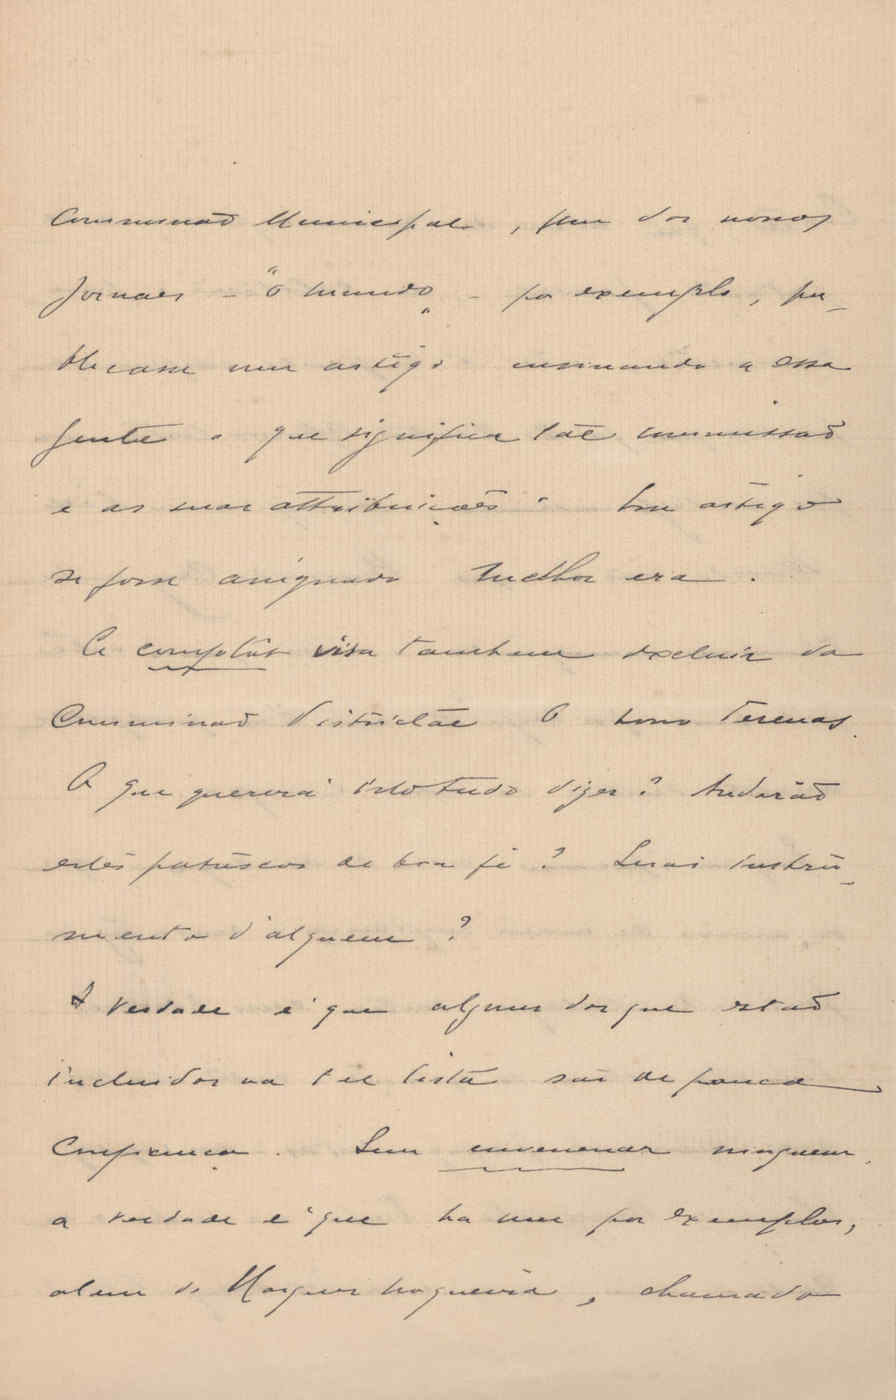 Commissaõ Municipal, que dos nossos
Jornaes – "O Mundo" – por exemplo, pu-
blicasse um artigo ensinando a essa
gente o que significa tál commissaõ
e as suas attribuições. Um artigo
se fosse assignado melhor era.
Ce complôt visa tambem excluir da
Commissaõ Districtál o novo Terenas.
O que quererá isto tudo dizer? Andaraõ
estes patuscos de boa fé? Seraõ instru-
mento d'alguem?
A verdade é que alguns dos que estaõ
incluidos na tal lista saõ de pouca
Confiança. Sem envenenar ninguem,
a verdade é que ha um por exemplo,
alem do Marques Nogueira, chamado